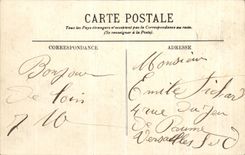 CARTE POSTALE
Tous les Pays étrangers n'acceptent pas la Correspondance au recto.
(Se renseigner à la Poste)
CORRESPONDANCE
ADRESSE
Bonjour
de loin
Monsieur
Emile
4 rue du Jeu
de Paume
Versailles S et O